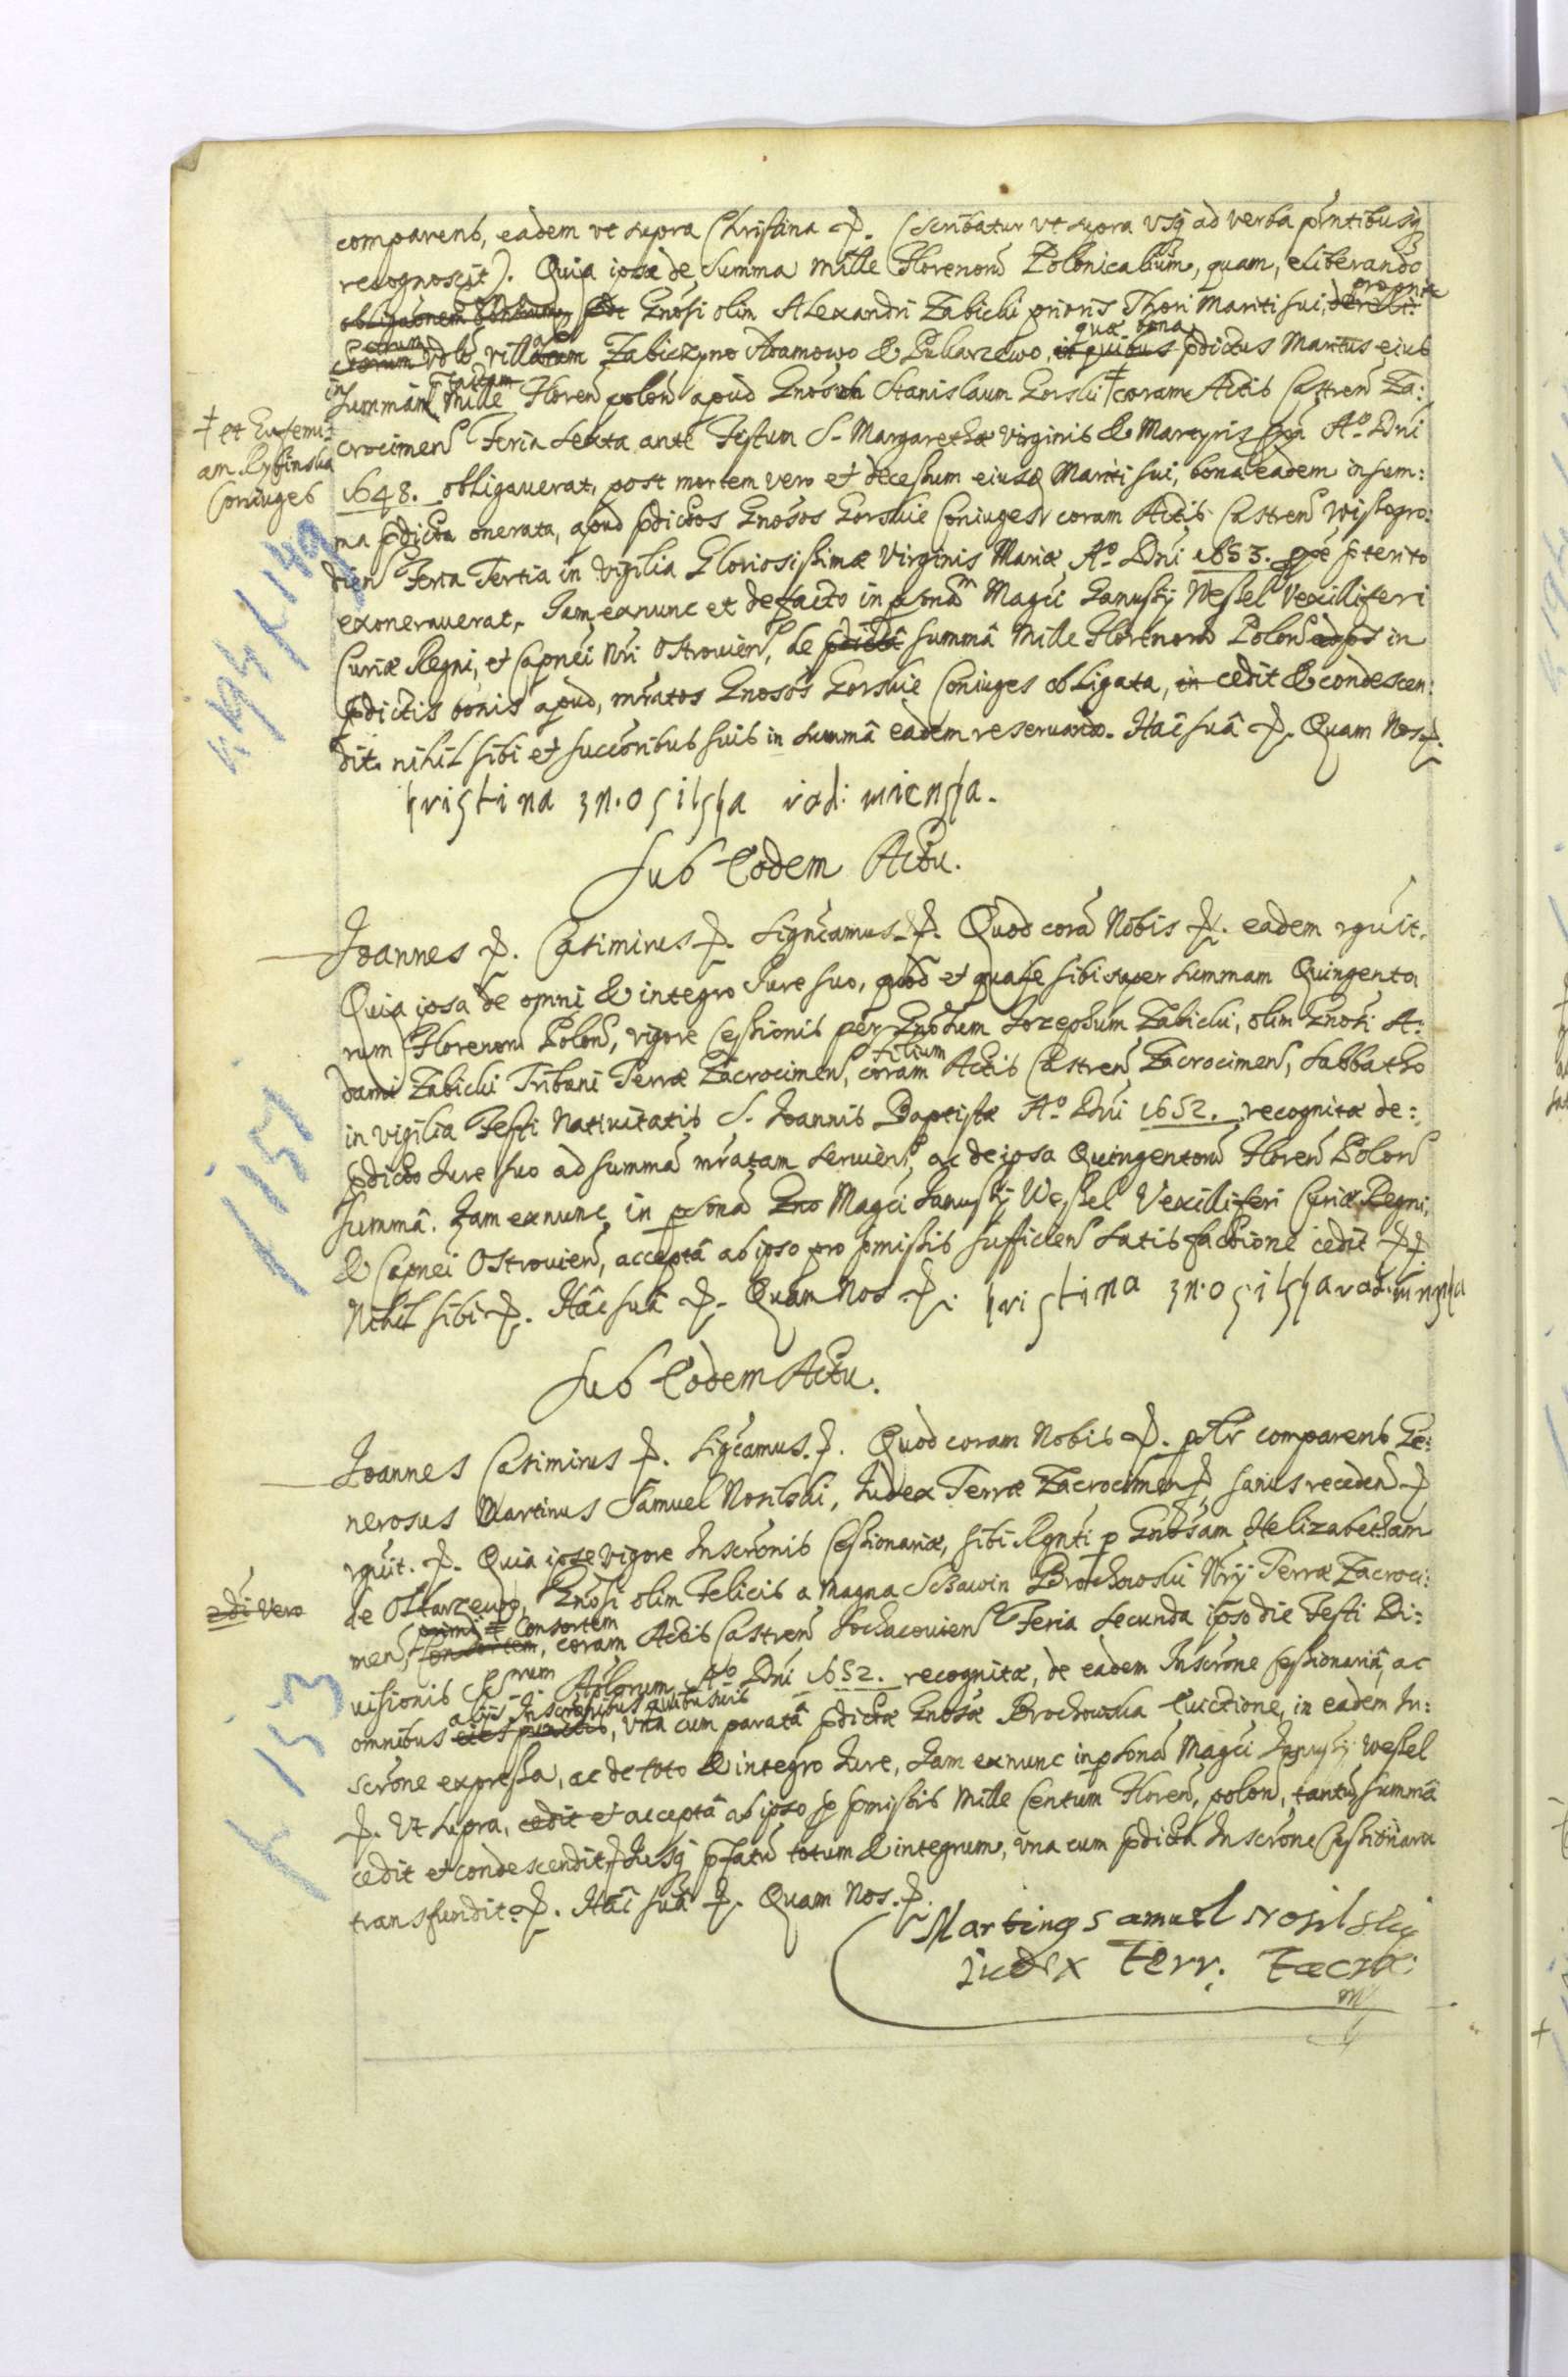 comparens, eadem vt supra Christina &. (scribatur vt supra vsq ad verba pñtibusq
recognoscit). Quia ipsa de Summa Mille Florenorũ Polonicalium, quam, eliberando
Gñosi olim Alexandri Zabicki prioris Thori Mariti sui, propria
villam Zabiczyno Adamowo & Pullarzewo, quæ bona pdictus Maritus eius
in Summam Mille Floren polon apud Gños Stanislaum Gorski ‡ coram Actis Castren Za:
‡ et Eufemi:
am Rybinska
Coniuges
crocimen Feria Sexta ante Festum S. Margarethæ Virginis & Martyris Aº Dñi
1648. obligauerat, post mortem vero et decessum eiusd Mariti sui, bona eadem in sum:
ma pdicta onerata, apud pdictos Gnosos Gorskie Coniuges coram Actis Castren Wissogro:
dien Feria Tertia in Vigilia Gloriosissimæ Virginis Mariæ, Aº Dñi 1653. pterito
exonerauerat, Iam exnunc et defacto in psonam Magci Ianusÿ Wessel Vexilliferi
Curiæ Regni, et Capnei Nri Ostrouien, de summâ Mille Florenorũ Polon in
pdictis bonis apud, mratos Gnosos Gorskie Coniuges obligata, cedit & condescen:
dit. nihil sibi et succoribus suis in summâ eadem reseruando. Hac suâ &. Quam Nos &.
kristina zn.osilska radimienska.
Sub Eodem Actu.
Joannes &. Casimirus &. Signcamus &. Quod corã Nobis &. eadem rguit.
Quia ipsa de omni & integro Iure suo, quod et quale sibi super summam Quingento
rum Florenorũ Polon, vigore Cessionis per Gnosum Iozephum Zabicki, olim Gnosi A:
dami Zabicki Tribuni Terræ Zacrocimen, filium coram Actis Castren Zacrocimen, Sabbatho
in vigilia Festi Natiuitatis S. Ioannis Baptistæ Aº Dñi 1652. recognitæ de:
pdicto Iure suo ad summã mratam seruien, ac de ipsa Quingentorũ Floren Polon
Summâ. Iam exnunc in psonã Magci Ianusÿ Wessel Vexilliferi Curiæ Regni,
& Capnei Ostrouien, acceptâ ab ipso pro pmissis sufficien satisfactione cedit &.
Nihil sibi &. Hac suâ &. Quam Nos &. kristina zn.osilska rad.
Sub Eodem Actu.
Joannes Casimirus &. Signcamus &. Quod coram Nobis &. psltr comparens Ge:
nerosus Martinus Samuel Nosilski, Iudex Terræ Zacrocimen, sanus receden &
rguit. &. Quia ipse vigore Inscronis Cessionariæ, sibi Rgnti p Gnosam Helizabetham
de Ostarzewo, Gnosi olim Felicis a Magna Schawin Brochowski Nrÿ Terræ Zacroci:
2di vero
men, primi Consortem, coram Actis Castren Sochacouien Feria Secunda ipso die Festi Di:
uisionis Aplorum Aº Dñi 1652. recognitæ, de eadem Inscrone Cessionariâ, ac
omnibus alijs Inscronibus quibusuis, vna cum paratâ pdictæ Gnosæ Brochowska Euictione, in eadem In:
scrone expressa, ac de toto & integro Iure, Iam exnunc in psonã Magci Ianusÿ Wessel
&. Vt supra, cedit et acceptâ ab ipso p pmissis Mille Centum Floren, polon, tantũ summã
cedit et condescendit, Iusq pfatũ totum & integrum, vna cum pdicta Inscrone Cessionaria
transfundit. &. Hac suâ &. Quam Nos. &.
Martinus Samuel Nosilsky
iudex Terr. Zacro:
mp
K 151
K 153